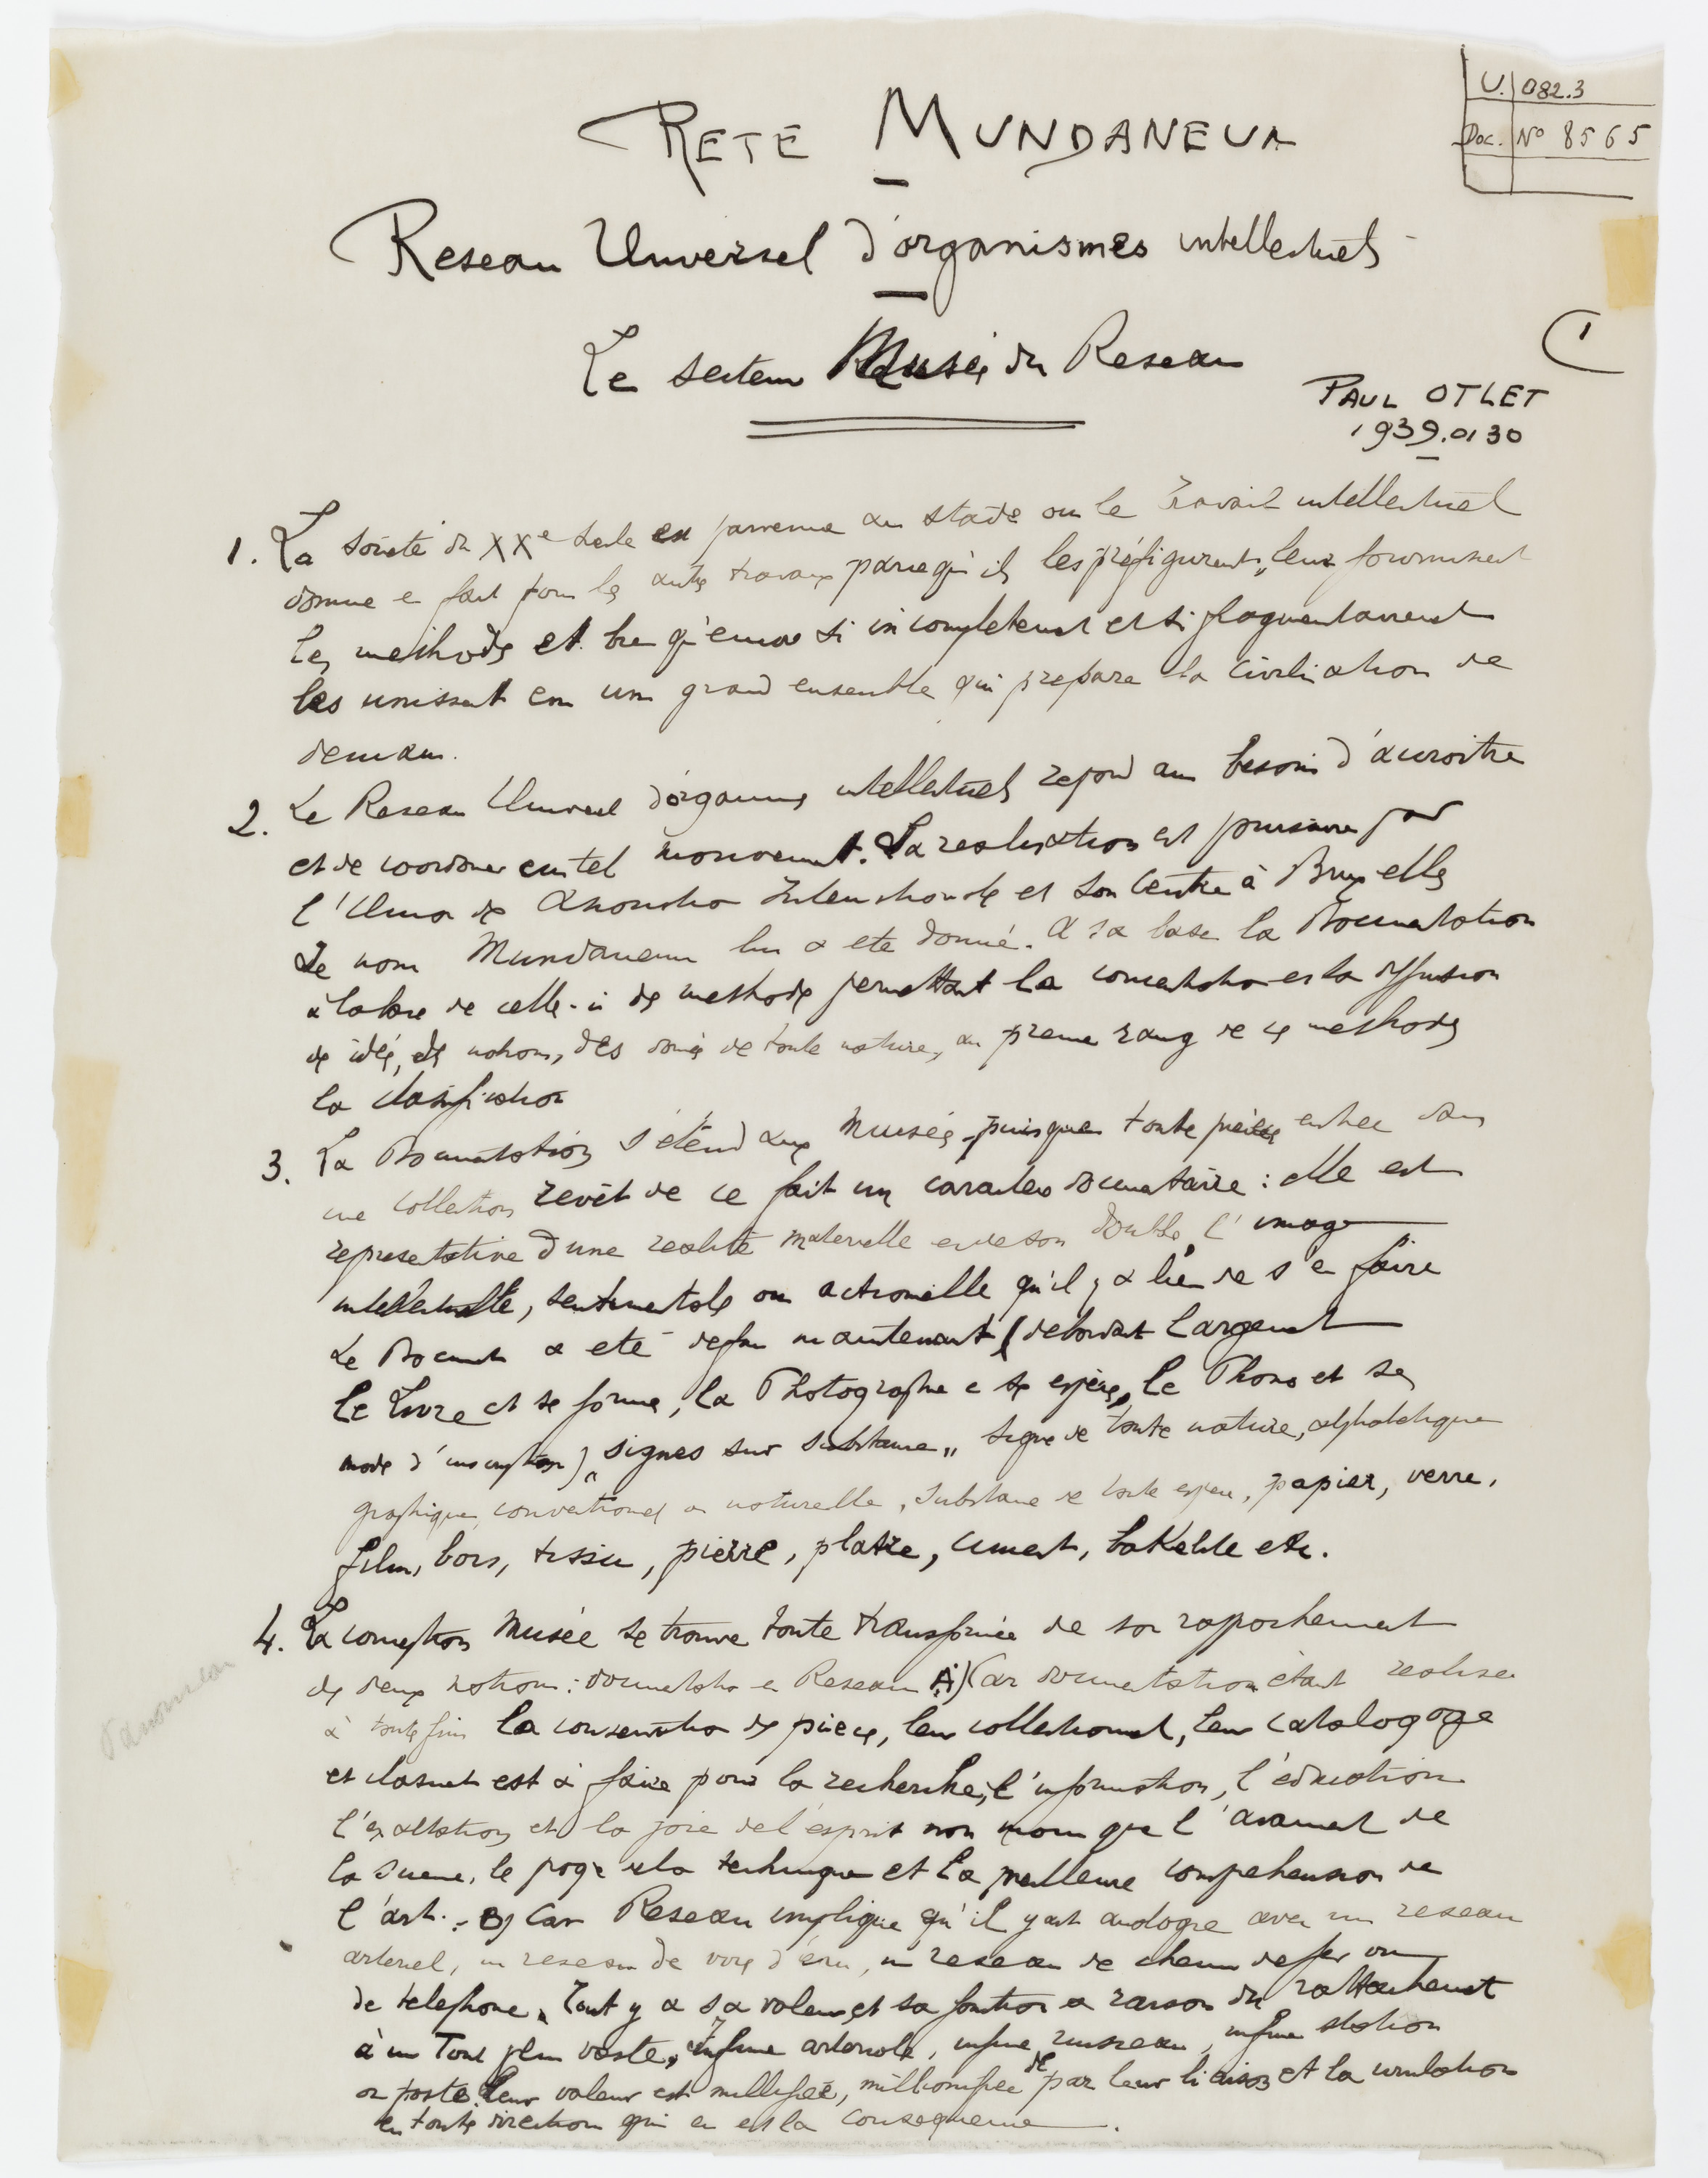 U. 082.3
Doc. No 8565
RETE MUNDANEUM
Reseau Universel d'organismes intellectuels
Le secteur Musée du Reseau
1
PAUL OTLET
1939.01 30
1. La Société du XXe siecle est parvenue au stade ou le travail intellectuel
domine et fait pour les autres travaux parcequ'ils les préfigurent, leur fournissent
les methodes et bien qu'encore si incompletement et si fragmentairement
les unissent en un grand ensemble qui prepare la civilisation de
demain.
2. Le Reseau Universel d'organismes intellectuels repond au besoin d'accroitre
et de coordonner un tel mouvement. Sa realisation est poursuivie par
l'Union des Associations Internationales et son Centre à Bruxelles
Le nom Mundaneum lui a ete donné. A sa base la Documentation
à la base de celle-ci des methodes permettant la concentration et la diffusion
des idées, des notions, des données de toute nature, au premier rang de ces methodes
la classification
3. La Documentation s'étend aux Musées, puisque toute pièce entrée dans
une collection revêt de ce fait un caractere documentaire : elle est
representative d'une realité materielle et de son double, l'image
intellectuelle, sentimentale ou actionnelle qu'il y a lieu de s'en faire
Le Document a eté defini maintenant (debordant largement
le Livre et ses formes, la Photographie et ses especes, le Phono et ses
modes d'inscription) "signes sur substance" signe de toute nature, alphabetique
graphique, conventionnel ou naturelle, substance de toute espece, papier, verre,
film, bois, tissu, pierre, platre, ciment, bakelite etc.
4. La conception Musée se trouve toute transformée de son rapprochement
des deux notions : documentation et Reseau A) Car documentation étant realisée
à toute fin la conservation des pieces, leur collectionnement, leur catalogage
et classement est à faire pour la recherche, l'information, l'éducation
l'exaltation et la joie de l'esprit non moins que l'avancement de
la science, le progrès de la technique et la meilleure comprehension de
l'art. - B) Car Reseau implique qu'il y ait analogie avec un reseau
arteriel, un reseau de voies d'eau, un reseau de chemin de fer ou
de telephone. Tout y a sa valeur et sa fonction a raison du rattachement
à un Tout plus vaste, infime arteriole, infime ruisseau, infime station
ou poste. Leur valeur est millifiée, millionifiée de par leur liaison et la circulation
en toute direction qui en est la consequence.